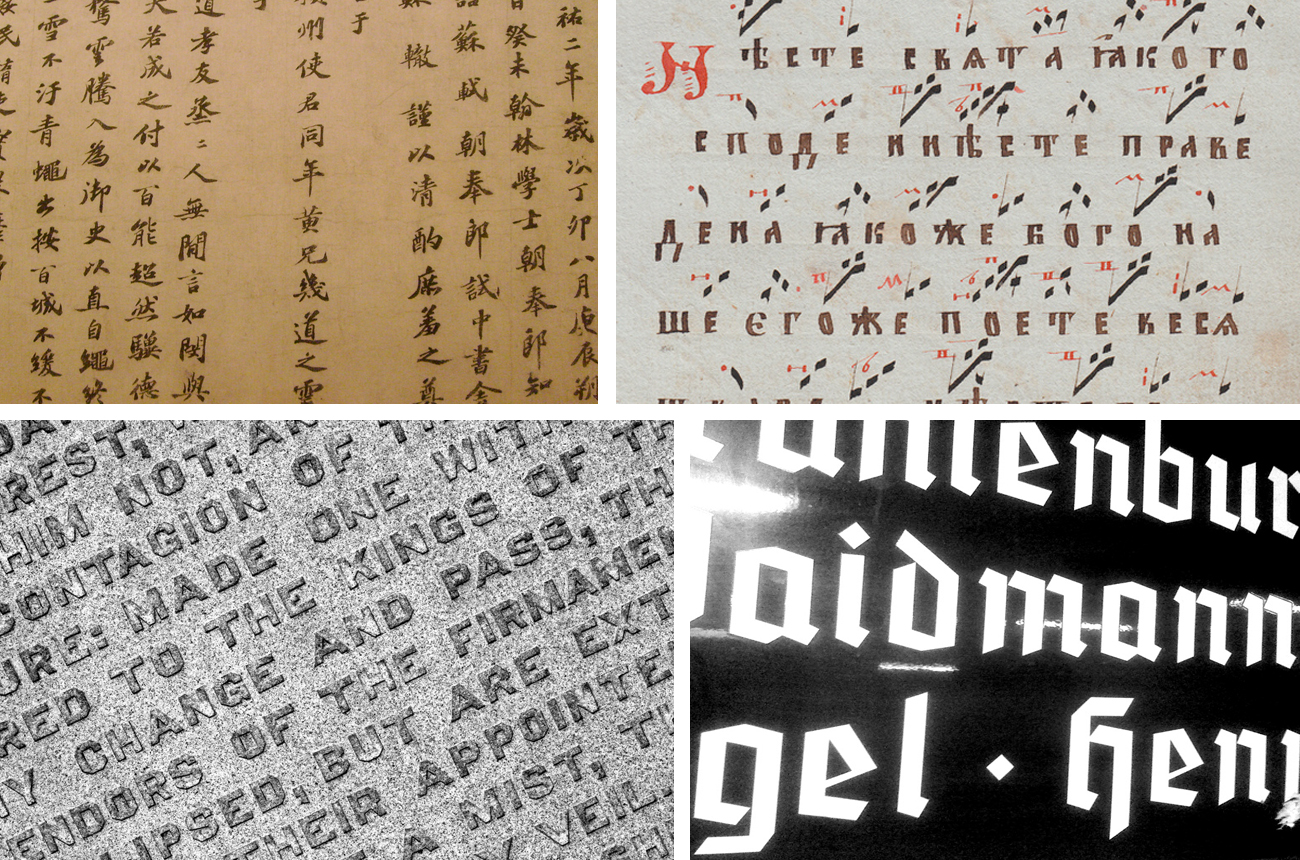 祐二年歲次丁卯八月庚辰朔
日癸未翰林學士朝奉郎知
誥蘇軾朝奉郎試中書舍
蘇轍謹以清酌庶羞之奠
于
州使君同年黃兄幾道之靈
道孝友烝〻人無間言如閔與
天若成之付以百能超然驥德
驚雲騰入為御史以直自繩終
雪不汙青蠅出按百城不緩不
Нѣсте свѧта ꙗкого
споде инѣсте праве
дена ꙗкоже бого на
ше єгоже поете весѧ
REST,
HIM NOT, AN
CONTAGION OF TH
URE: MADE ONE WITH
RED TO THE KINGS OF TH
Y CHANGE AND PASS, TH
ENDORS OF THE FIRMAMEN
LIPSED, BUT ARE EXT
THEIR APPOINTE
A MIST, TH
VEIL
enbur
aidmann
gel · Henn